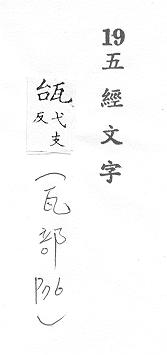 19五經文字
瓵弋支反
（瓦部P76）